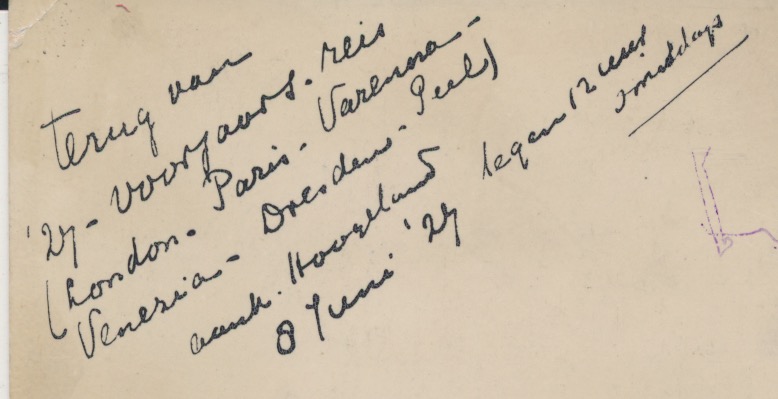 terug van
'27- voorjaars-reis
(London- Paris- Varenna-
Venezia- Dresden- Peel)
aank. Hoogeland tegen 12 uur
smiddags
8 Juni '27